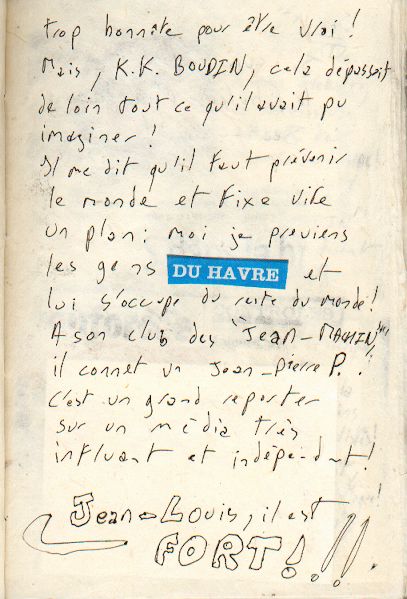 trop honnête pour être vrai !
Mais, K.K. BOUDIN, cela dépassait
de loin tout ce qu'il avait pu
imaginer !
Il me dit qu'il faut prévenir
le monde et fixe vite
un plan : moi je previens
les gens DU HAVRE et
lui s'occupe du reste du monde !
A son club des "Jean-MACHIN",
il connet un Jean-Pierre P. !
C'est un grand reporter
sur un média très
influant et indépendant !
Jean-Louis, il est
FORT !!!